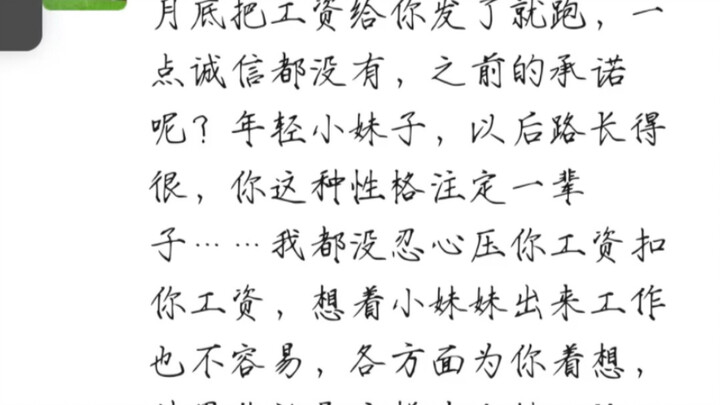 月底把工资给你发了就跑，一
点诚信都没有，之前的承诺
呢？年轻小妹子，以后路长得
很，你这种性格注定一辈
子……我都没忍心压你工资扣
你工资，想着小妹妹出来工作
也不容易，各方面为你着想，